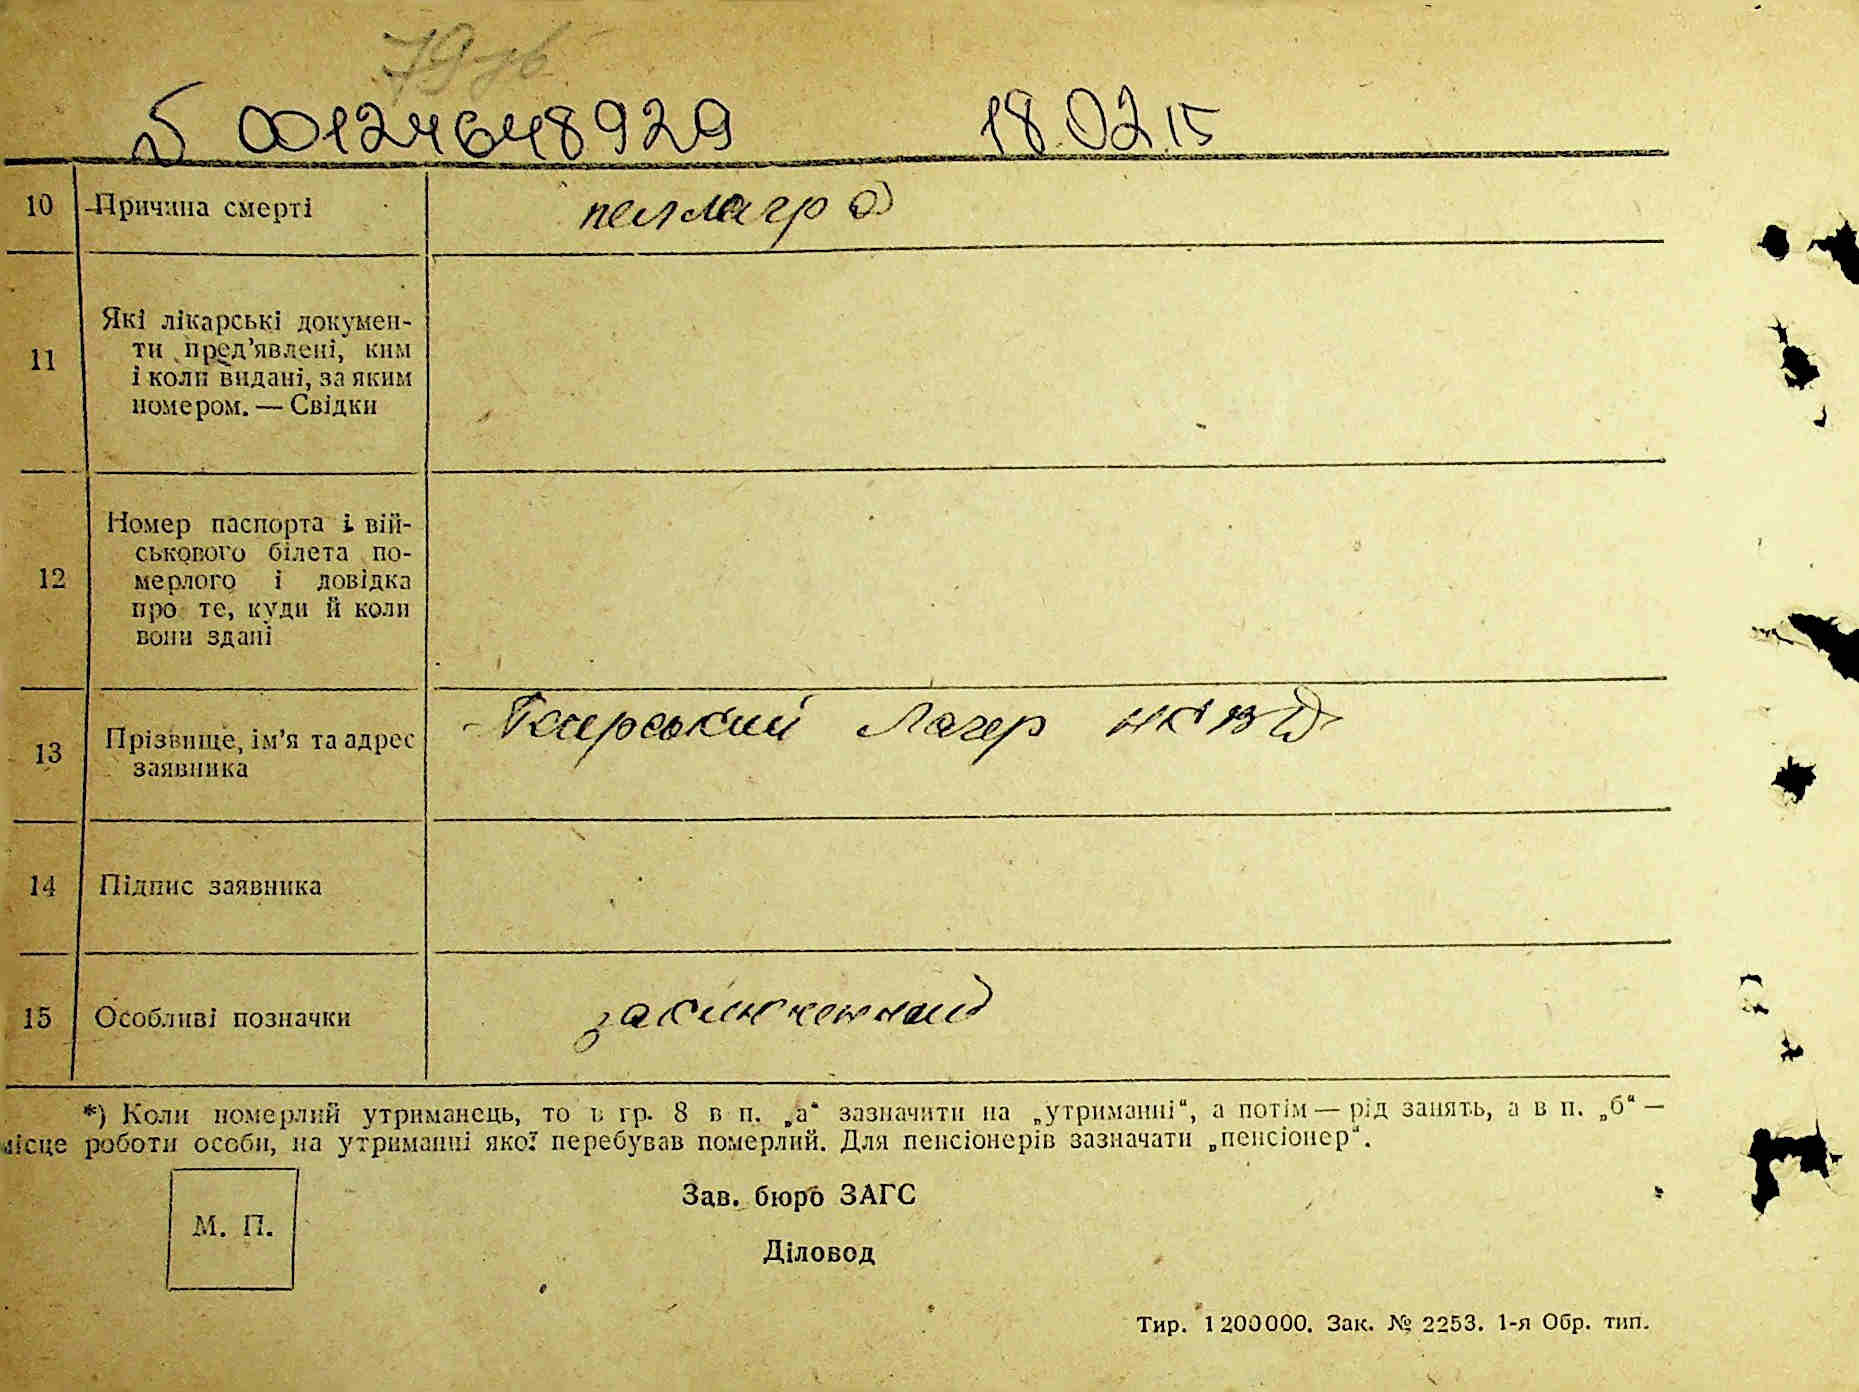 00124648929 18.02.15
10 Причина смерті пеллагра
11 Які лікарські докумен-
ти пред’явлені, ким
і коли видані, за яким
номером. — Свідки
12 Номер паспорта і вій-
ськового білета по-
мерлого і довідка
про те, куди й коли
вони здані
13 Прізвище, ім’я та адрес
заявника
Лагер НКВД
14 Підпис заявника
15 Особливі позначки
*) Коли померлий утриманець, то в гр. 8 в п. „а“ зазначити на „утриманні“, а потім — рід занять, а в п. „б“ —
місце роботи особи, на утриманні якої перебував померлий. Для пенсіонерів зазначати „пенсіонер“.
М. П.
Зав. бюро ЗАГС
Діловод
Тир. 1200000. Зак. № 2253. 1-я Обр. тип.